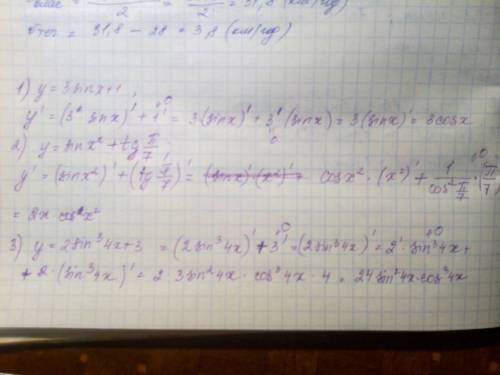 2 2 = 31,8 (км/год)
31,8 − 28 = 3,8 (км/год)
1) y = 3sinx+1;
y' = (3·sinx)' + 1'⁰ = 3(sinx)' + 3'(sinx) = 3(sinx)' = 3cosx
0
2) y = sinx² + tg π/7;
y' = (sinx²)' + (tg π/7)' = (sinx)'(x²)' cosx²·(x²)' + 1/cos² π/7 · (π/7)'⁰
= 2x cosx²
3) y = 2sin³4x+3 = (2sin³4x)' + 3'⁰ = (2sin³4x)' = 2'⁰·sin³4x +
+ 2·(sin³4x)' = 2·3sin²4x·cos³4x·4 = 24sin²4x·cos³4x